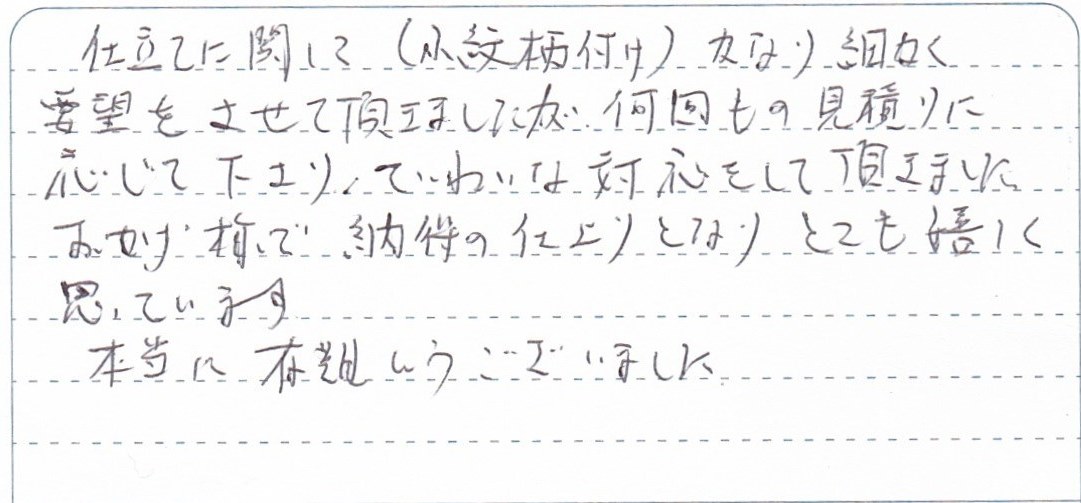 仕立てに関して（小紋柄付け）かなり細かく
要望をさせて頂きましたが 何回もの見積りに
応じて下さり、ていねいな対応をして頂きました
おかげ様で 納得の仕上りとなりとても嬉しく
思っています
本当に有難うございました